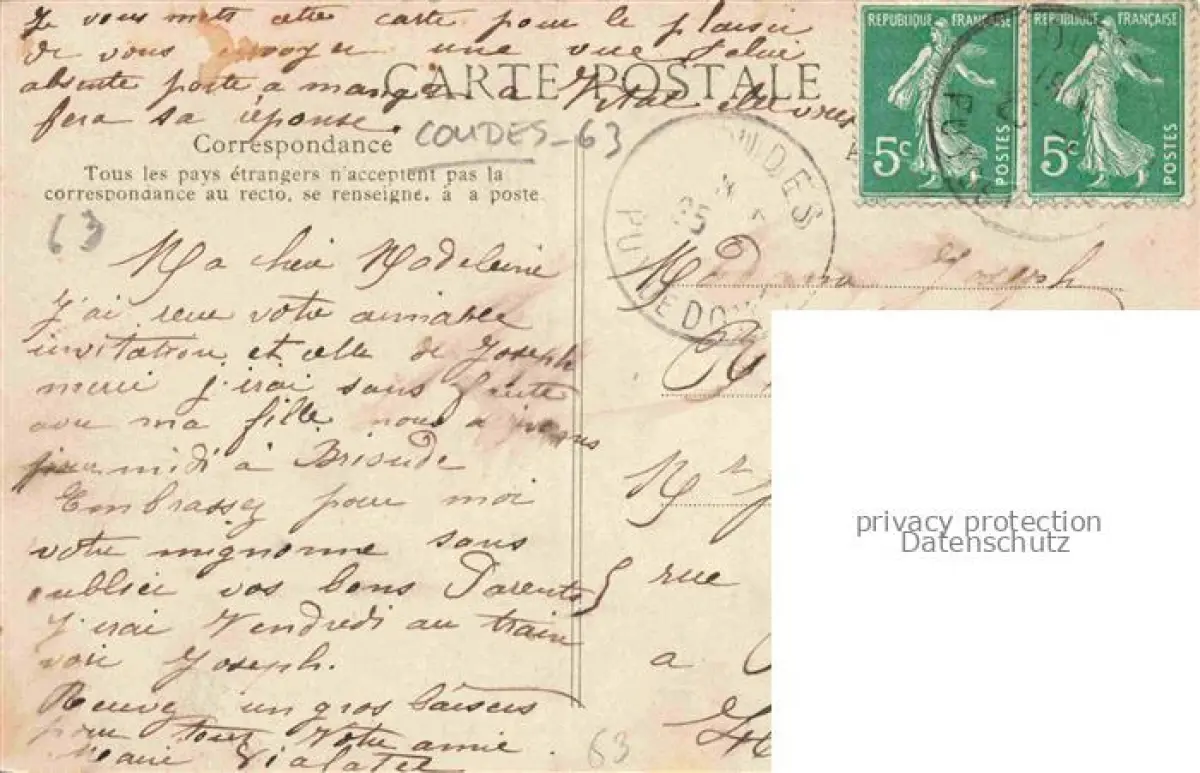 Je vous mets cette carte pour le plaisir
de vous envoyer une vue
absente porte a manger a Vital
fera sa réponse.
CARTE POSTALE
Correspondance
COUDES-63
Tous les pays étrangers n'acceptent pas la
correspondance au recto, se renseigner à la poste
63
Ma chère Madeleine
J'ai reçu votre aimable
invitation et celle de Joseph
merci j'irai sans faute
avec ma fille nous
midi à Brioude
Embrassez pour moi
votre mignonne sans
oublier vos bons Parents
J'irai Vendredi au train
voir Joseph.
Recevez un gros baisers
pour tous Votre amie
Marie Vialatel
63
REPUBLIQUE FRANÇAISE
5c POSTES
REPUBLIQUE FRANÇAISE
5c POSTES
COUDES
PUY DE DOME
Madame Joseph
Mr
rue
a
privacy protection
Datenschutz